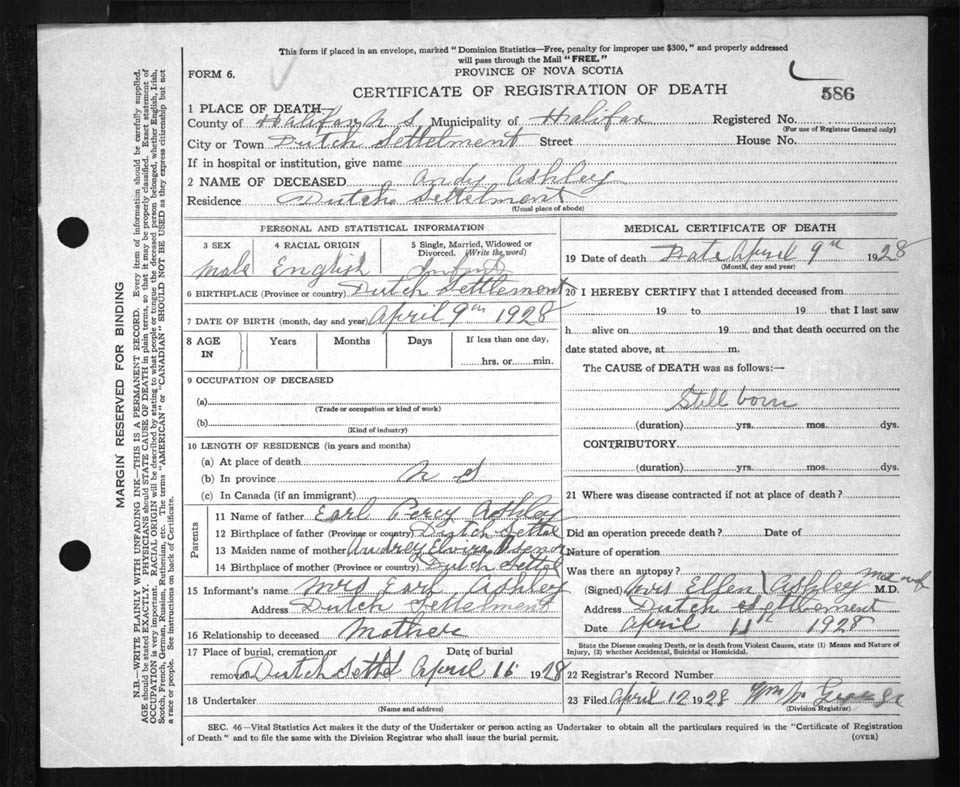 This form if placed in an envelope, marked "Dominion Statistics—Free, penalty for improper use $300," and properly addressed
will pass through the Mail "FREE."
FORM 6.
PROVINCE OF NOVA SCOTIA
CERTIFICATE OF REGISTRATION OF DEATH
586
1 PLACE OF DEATH—
County of Halifax N S Municipality of Halifax Registered No.
(For use of Registrar General only)
City or Town Dutch Settelment Street House No.
If in hospital or institution, give name
2 NAME OF DECEASED Andy Ashley
Residence Dutch Settelment
(Usual place of abode)
PERSONAL AND STATISTICAL INFORMATION
3 SEX 4 RACIAL ORIGIN 5 Single, Married, Widowed or Divorced. (Write the word)
Male English Infant
6 BIRTHPLACE (Province or country) Dutch Settlement
7 DATE OF BIRTH (month, day and year) April 9th 1928
8 AGE IN Years Months Days If less than one day,
hrs. or min.
9 OCCUPATION OF DECEASED
(a)
(Trade or occupation or kind of work)
(b)
(Kind of industry)
10 LENGTH OF RESIDENCE (in years and months)
(a) At place of death
(b) In province N S
(c) In Canada (if an immigrant)
Parents
11 Name of father Earl Percy Ashley
12 Birthplace of father (Province or country) Dutch Settel
13 Maiden name of mother Audrey Elvira
14 Birthplace of mother (Province or country) Dutch Settel
15 Informant's name Mrs Earl Ashley
Address Dutch Settelment
16 Relationship to deceased Mother
17 Place of burial, cremation or removal Date of burial
Dutch Settel April 16 1928
18 Undertaker
(Name and address)
MEDICAL CERTIFICATE OF DEATH
19 Date of death Date April 9th 1928
(Month, day and year)
20 I HEREBY CERTIFY that I attended deceased from
19 to 19 that I last saw
h alive on 19 and that death occurred on the
date stated above, at m.
The CAUSE of DEATH was as follows:—
Still born
(duration) yrs. mos. dys.
CONTRIBUTORY
(duration) yrs. mos. dys.
21 Where was disease contracted if not at place of death?
Did an operation precede death? Date of
Nature of operation
Was there an autopsy?
(Signed) Mrs Ellen Ashley M.D.
Address Dutch Settlement
Date April 11th 1928
State the Disease causing Death, or in death from Violent Causes, state (1) Means and Nature of
Injury, (2) whether Accidental, Suicidal or Homicidal.
22 Registrar's Record Number
23 Filed April 12 1928 Wm
(Division Registrar)
SEC. 46—Vital Statistics Act makes it the duty of the Undertaker or person acting as Undertaker to obtain all the particulars required in the "Certificate of Registration
of Death" and to file the same with the Division Registrar who shall issue the burial permit.
(OVER)
MARGIN RESERVED FOR BINDING
N.B.—WRITE PLAINLY WITH UNFADING INK—THIS IS A PERMANENT RECORD. Every item of information should be carefully supplied.
AGE should be stated EXACTLY. PHYSICIANS should STATE CAUSE OF DEATH in plain terms, so that it may be properly classified. Exact statement of
OCCUPATION is very important. RACIAL ORIGIN will be described by stating to what people or tongue the deceased person belonged, whether English, Irish,
Scotch, French, German, Russian, Ruthenian, etc. The terms "AMERICAN" or "CANADIAN" SHOULD NOT BE USED as they express citizenship but not
a race or people. See instructions on back of Certificate.